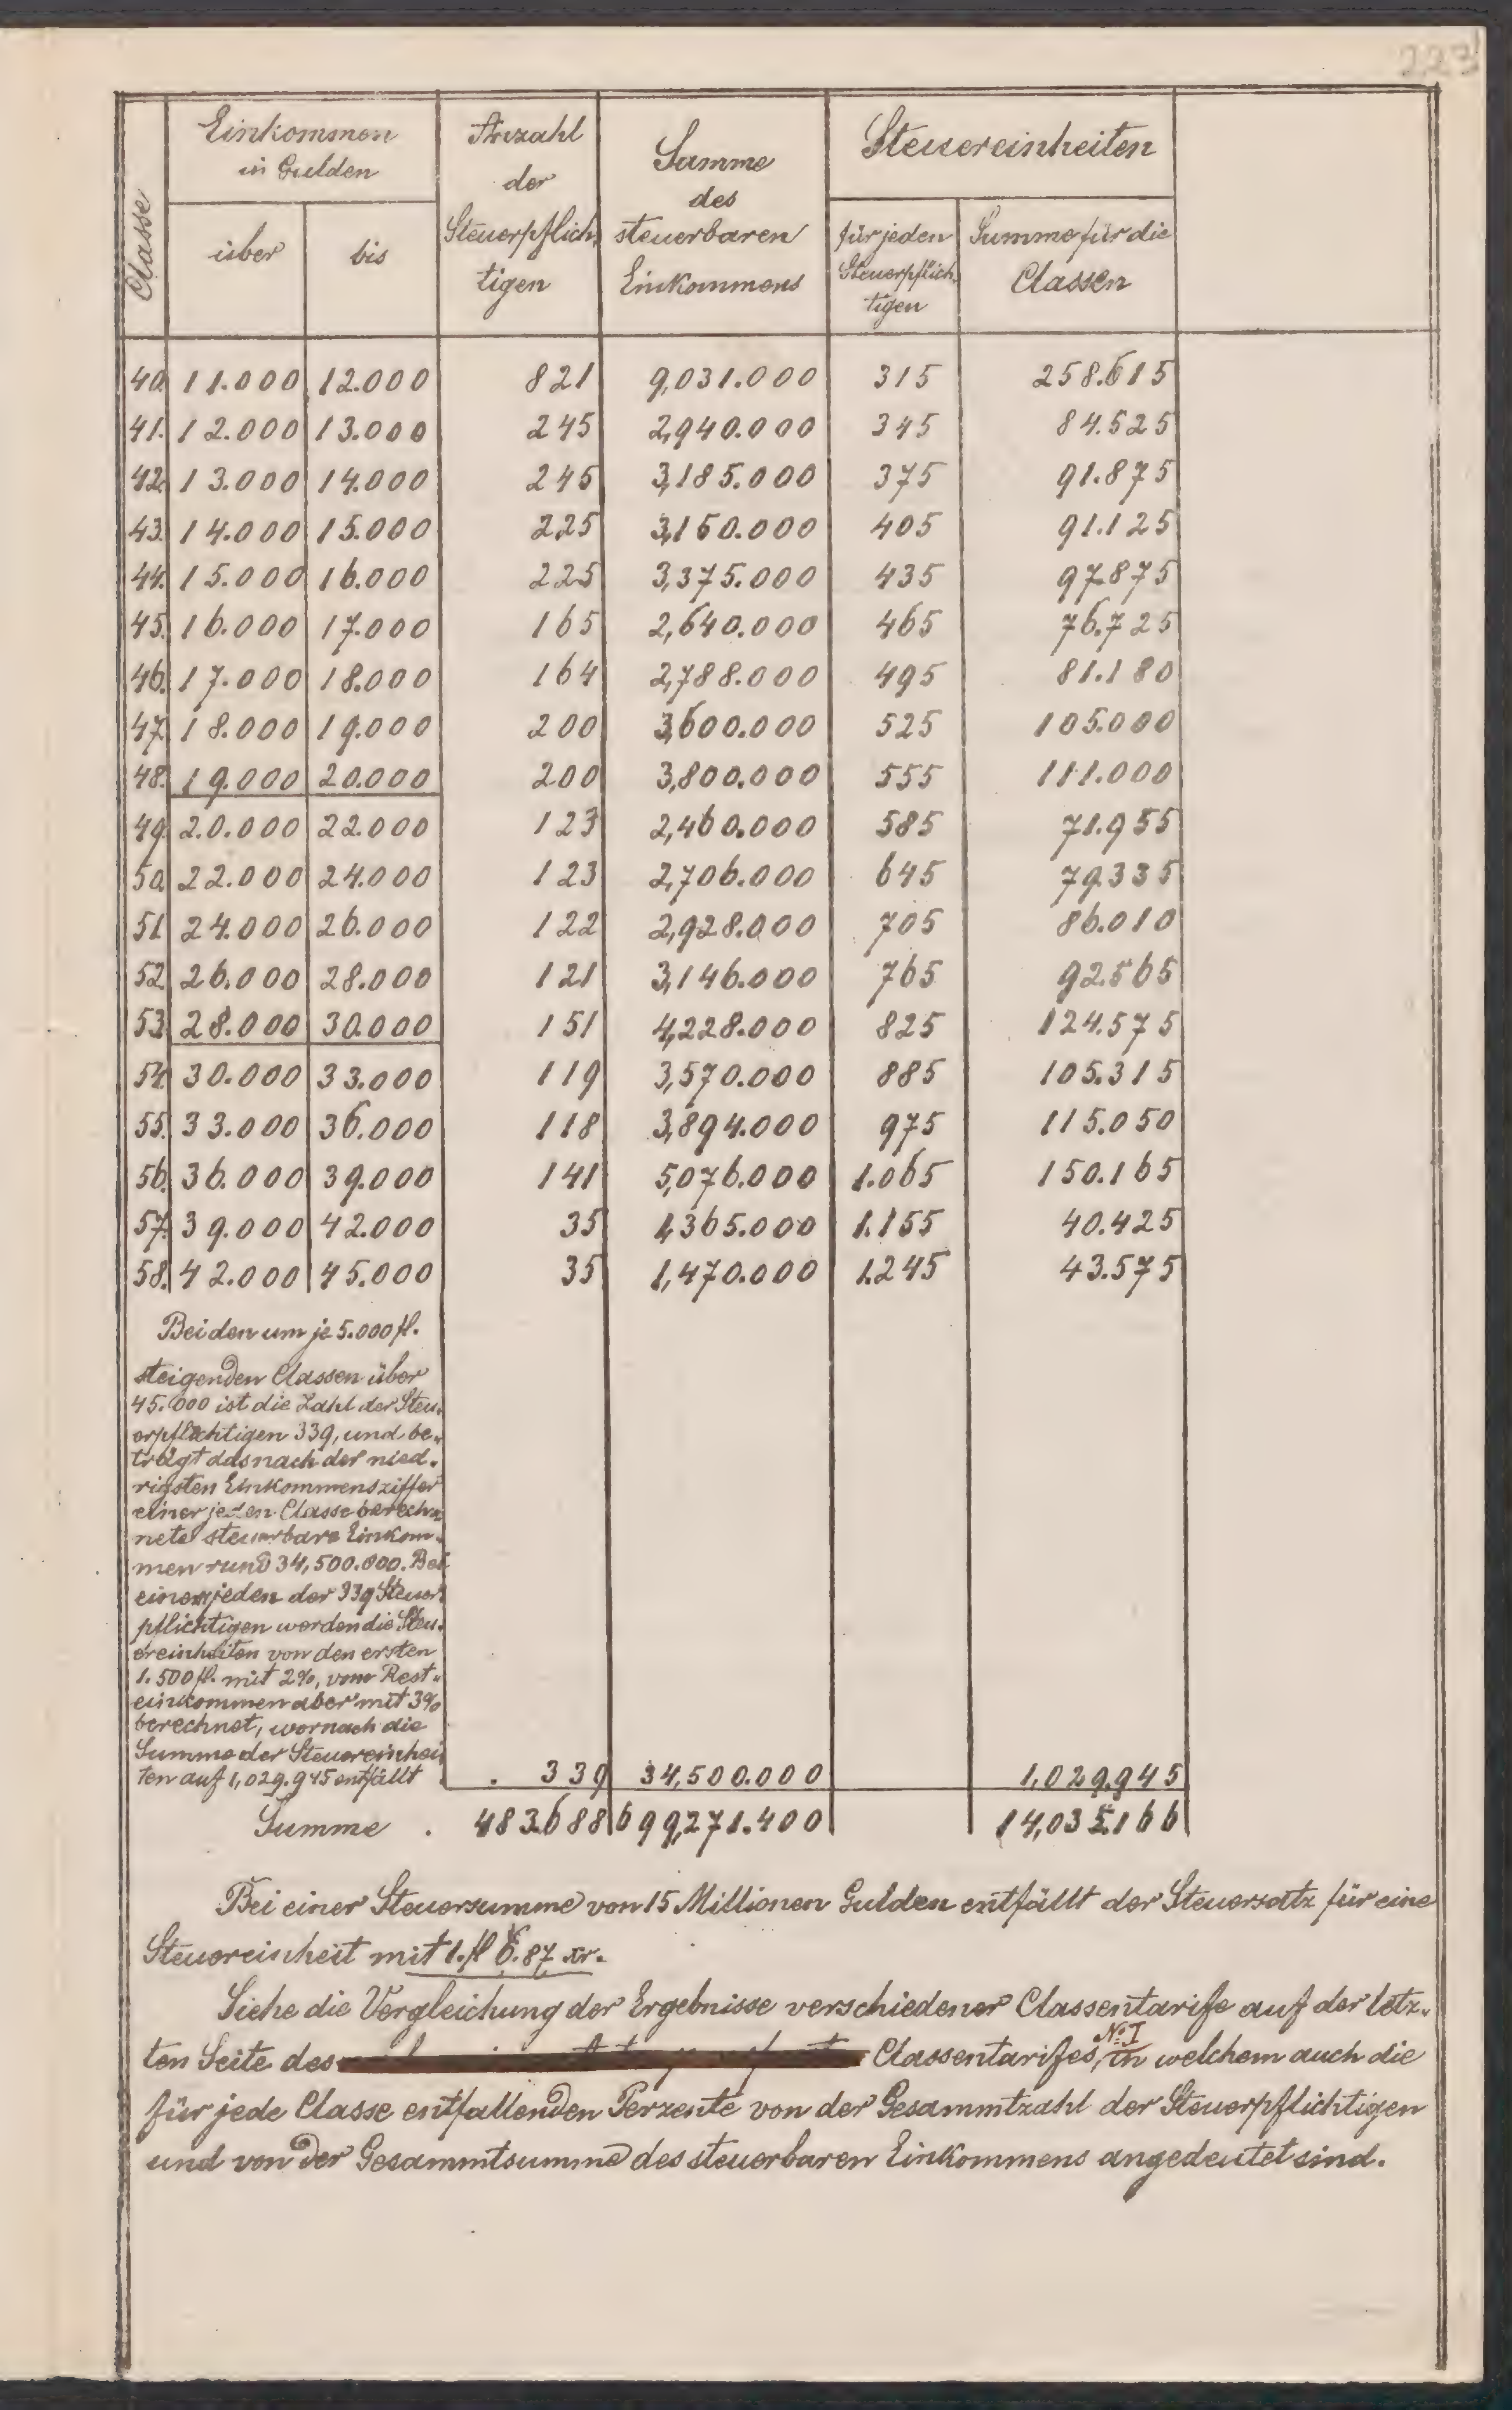 223
Classe
Einkommen
in Gulden
über
bis
Anzahl
der
Steuerpflich-
tigen
Summe
des
steuerbaren
Einkommens
Steuereinheiten
für jeden
Steuerpflich-
tigen
Summe für die
Classen
40. 11.000 12.000 821 9,031.000 315 258.615
41. 12.000 13.000 245 2,940.000 345 84.525
42. 13.000 14.000 245 3,185.000 375 91.875
43. 14.000 15.000 225 3,150.000 405 91.125
44. 15.000 16.000 225 3,375.000 435 97.875
45. 16.000 17.000 165 2,640.000 465 76.725
46. 17.000 18.000 164 2,788.000 495 81.180
47. 18.000 19.000 200 3,600.000 525 105.000
48. 19.000 20.000 200 3,800.000 555 111.000
49. 20.000 22.000 123 2,460.000 585 71.955
50. 22.000 24.000 123 2,706.000 645 79.335
51. 24.000 26.000 122 2,928.000 705 86.010
52. 26.000 28.000 121 3,146.000 765 92.565
53. 28.000 30.000 151 4,228.000 825 124.575
54. 30.000 33.000 119 3,570.000 885 105.315
55. 33.000 36.000 118 3,894.000 975 115.050
56. 36.000 39.000 141 5,076.000 1.065 150.165
57. 39.000 42.000 35 1,365.000 1.155 40.425
58. 42.000 45.000 35 1,470.000 1.245 43.575
Bei den um je 5.000 fl.
steigenden Classen über
45.000 ist die Zahl der Steu-
erpflichtigen 339, und be-
trägt das nach der nied-
rigsten Einkommensziffer
einer jeden Classe berech-
nete steuerbare Einkom-
men rund 34,500.000. Bei
einem jeden der 339 Steuer-
pflichtigen werden die Steu-
ereinheiten von den ersten
1.500 fl. mit 2%, vom Rest-
einkommen aber mit 3%
berechnet, wornach die
Summe der Steuereinhei-
ten auf 1,029.945 entfällt . . 339 34,500.000 1,029.945
Summe . 483.688 699,271.400 14,035.166
Bei einer Steuersumme von 15 Millionen Gulden entfällt der Steuersatz für eine
Steuereinheit mit 1. fl 6.87 xr.
Siehe die Vergleichung der Ergebnisse verschiedener Classentarife auf der letz-
ten Seite des Classentarifes, No. I in welchem auch die
für jede Classe entfallenden Perzente von der Gesammtzahl der Steuerpflichtigen
und von der Gesammtsumme des steuerbaren Einkommens angedeutet sind.